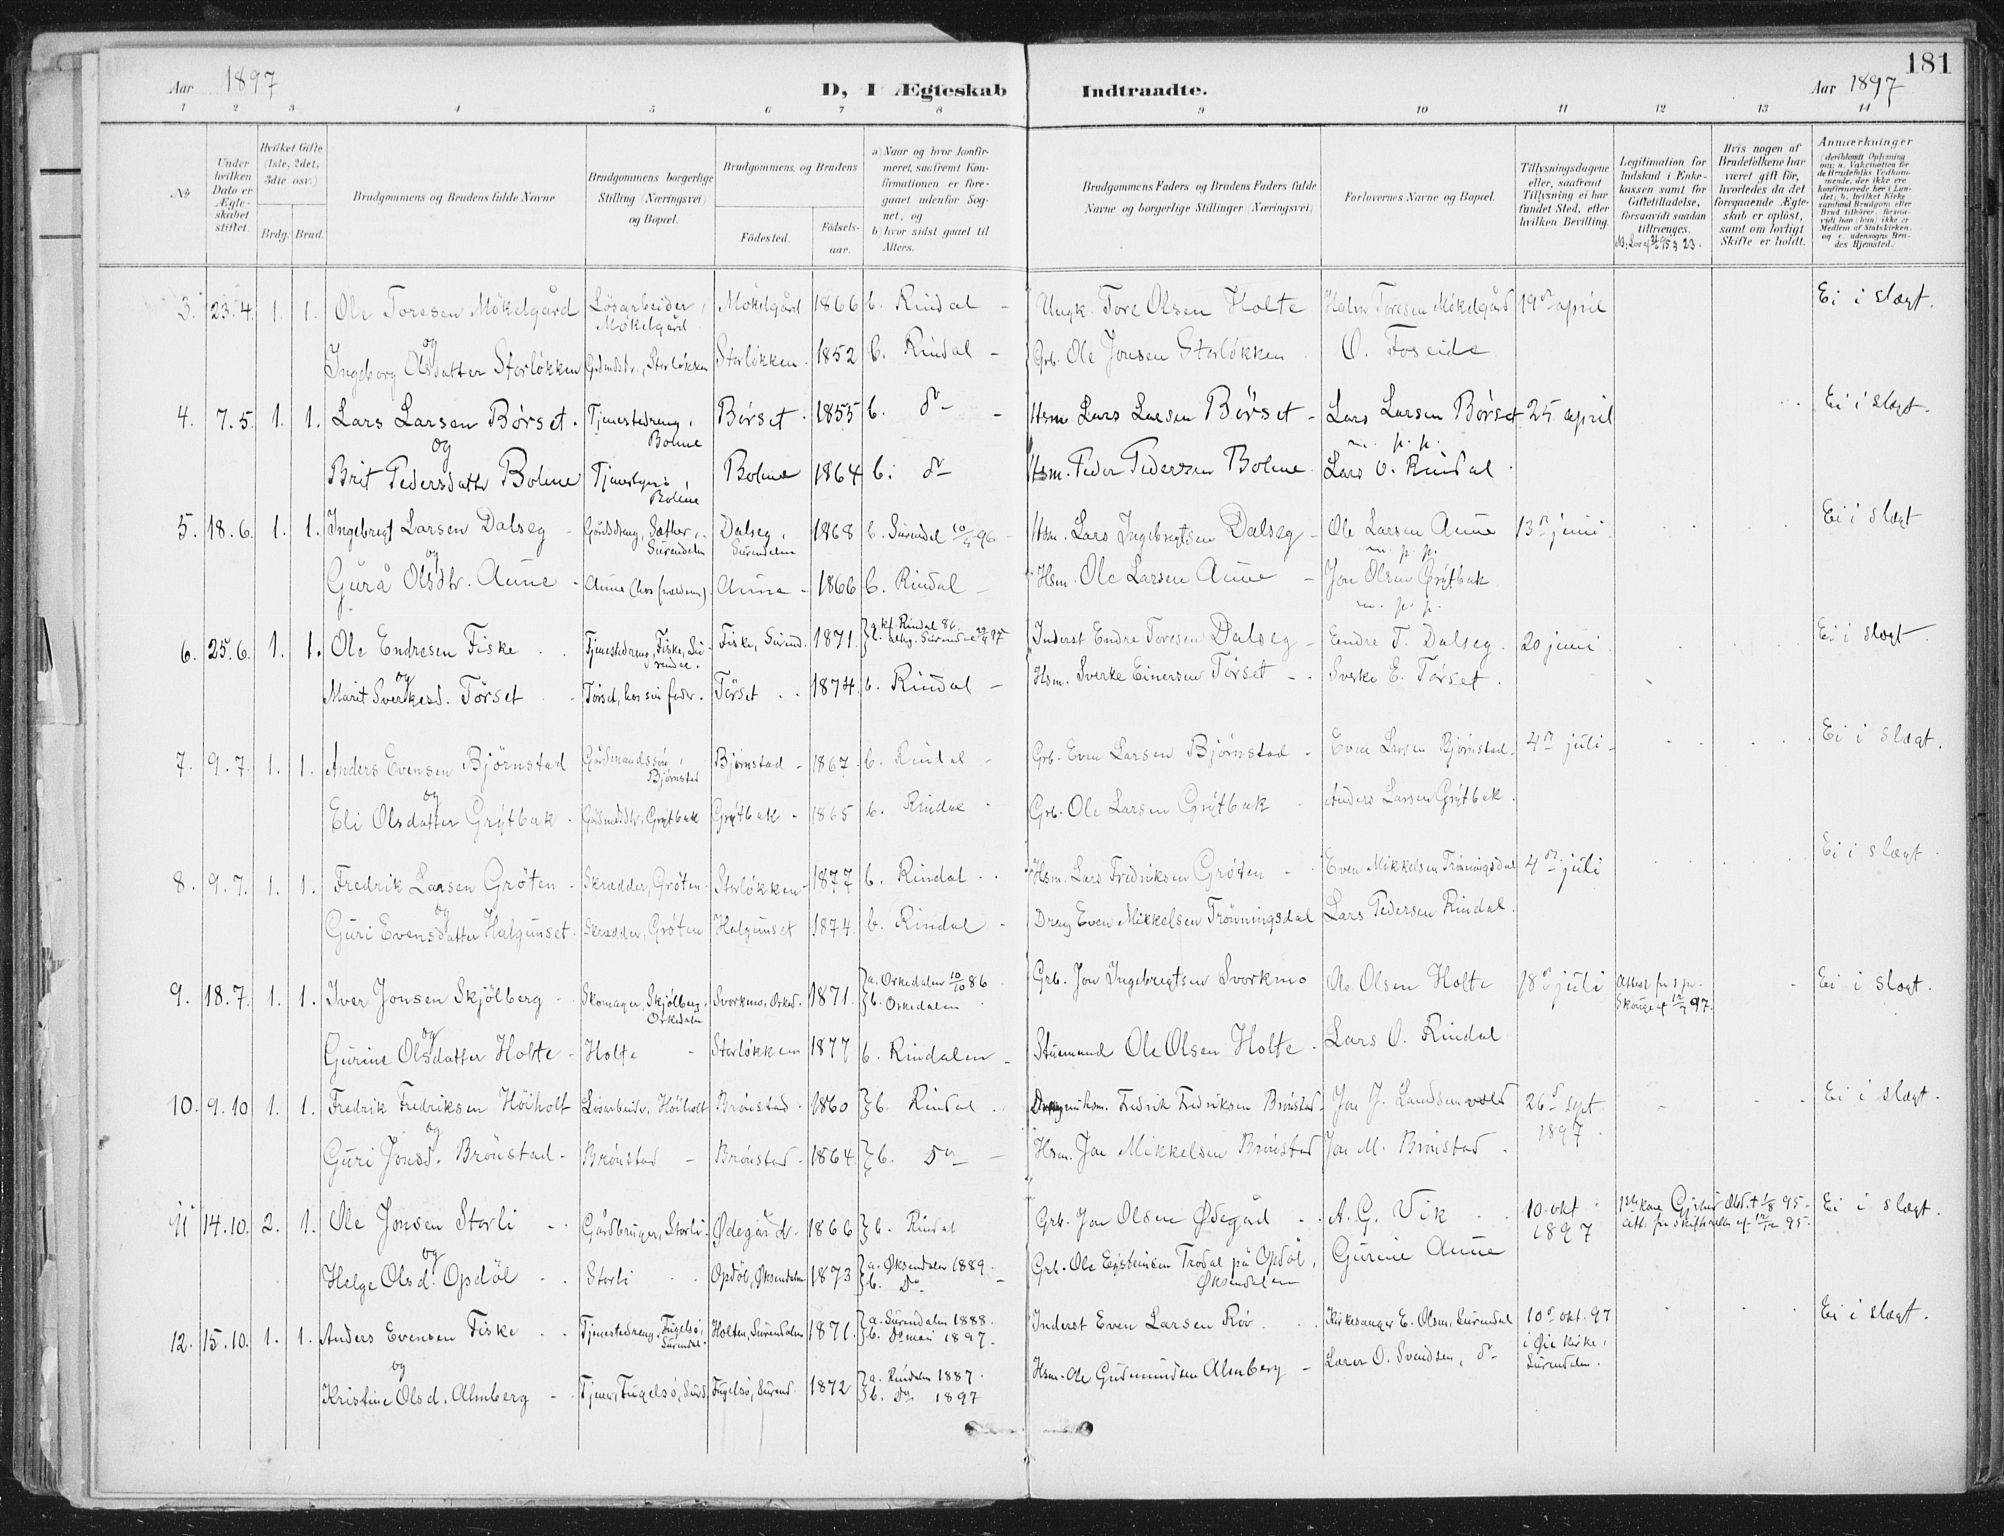 181
Aar 1897 D, I Ægteskab Indtraadte. Aar 1897
1 2 3 4 5 6 7 8 9 10 11 12 13 14
No
Under hvilken Dato er Ægteskabet stiftet.
Hvilket Gifte (1ste, 2det, 3die osv.)
Brdg. Brud.
Brudgommens og Brudens fulde Navne
Brudgommens borgerlige Stilling (Næringsvei) og Bopæl.
Brudgommens og Brudens
Fødested. Fødselsaar.
a) Naar og hvor konfirmeret, saafremt Konfirmationen er foregaaet udenfor Sognet, og
b) hvor sidst gaaet til Alters.
Brudgommens Faders og Brudens Faders fulde Navne og borgerlige Stillinger (Næringsvei)
Forlovernes Navne og Bopæl.
Tillysningsdagene eller, saafremt Tillysning ei har fundet Sted, efter hvilken Bevilling.
Legitimation for Indskud i Enkekassen samt for Giftetilladelse, forsaavidt saadan tiltrænges.
Hvis nogen af Brudefolkene har været gift før, hvorledes da det foregaaende Ægteskab er opløst, samt om lovligt Skifte er holdt.
Anmærkninger
3. 23.4. 1. 1. Ole Toresen Mökelgård Løsarbeider, Mökelgård Mökelgård 1866 b. Rindal - Ungk. Tore Olsen Holte Halvor Toresen Mökelgård 19de april Ei i slægt.
og
Ingeborg Olsdatter Storløkken Grdmdstr., Storløkken Storløkken 1852 b. Rindal - Grb. Ole Jonsen Storløkken O. Foseide
4. 7.5. 1. 1. Lars Larsen Börset. Tjenestedreng, Bolme Börset 1855 b. do - Hsm. Lars Larsen Börset - Lars Larsen Börset m. p. p. 25 april Ei i slægt.
og
Brit Pedersdattr Bolme Bolme Bolme 1864 b. do Hsm. Peder Pedersen Bolme Lars O. Rindal
5. 18.6. 1. 1. Ingebrigt Larsen Dalseg Gårdsdreng, Sætter, Surendalen Dalseg, Surendalen 1868 b. Surendal 10/5 96 Hsm. Lars Ingebrigtsen Dalseg - Ole Larsen Aune m. p. p. 13de juni Ei i slægt
og
Gurå Olsdtr. Aune - Aune (hos forældrene). Aune - 1866 b. Rindal - Hsm. Ole Larsen Aune - Jon Olsen Grytbak m. p. p.
6. 25.6. 1. 1. Ole Endresen Fiske Tjenestedreng, Fiske, Surendal. Fiske, Surend. 1871 a. kf. Rindal 86. Inderst Endre Toresen Dalseg - Eendre T. Dalseg. 20 juni Ei i slægt.
og
Marit Sverkesd. Törset Törset, hos sin fader. Törset 1874. b. Rindal - Hsm. Sverke Einersen Törset Sverke E. Törset.
7. 9.7. 1. 1. Anders Evensen Björnstad Gårdmandssøn, Björnstad Björnstad - 1867. b. Rindal - Grb. Even Larsen Björnstad - Even Larsen Björnstad 4de juli Ei i slægt.
og
Eli Olsdatter Grytbak - Gårdmdsdtr. Grytbak Grytbak - 1865 b. Rindal Grb. Ole Larsen Grytbak Anders Larsen Grytbak.
8. 9.7. 1. 1. Fredrik Larsen Gröten Skrædder, Gröten. Storløkken 1877 b. Rindal Hsm. Lars Fredriksen Gröten Even Mikkelsen Trönningsdal 4de juli Ei i slægt.
og
Guri Evensdatter Halgunset. Skrædder, Gröten Halgunset 1874. b. Rindal Dreng Even Mikkelsen Trönningsdal Lars Pedersen Rindal.
9. 18.7. 1. 1. Iver Jonsen Skjölberg Skomager, Skjölberg, Orkedalen Svorkmo, Orked. 1871. a. Orkedalen 10/10 86 b. Orkedalen Grb. Jon Ingebregtsen Svorkmo Ole Olsen Holte 18de juli Attest fra s.pr. Skouge af 12/7 97. Ei i slægt.
og
Gurine Olsdatter Holte - Holte - Storløkken 1877 b. Rindalen - Stuemand Ole Olsen Holte. Lars O. Rindal
10. 9.10 1. 1. Fredrik Fredriksen Höiholt Løsarbeidr, Höiholt Brönstad. 1860 b. Rindal Hsm. Fredrik Fredriksen Brönstad Jon J. Landsemvold 26de sept 1897. Ei i slægt.
og
Guri Jonsd. Brönstad - Brönstad - Brönstad. 1864. b. Do - Hsm. Jon Mikkelsen Brönstad Jon M. Brönstad.
11 14.10. 2. 1. Ole Jonsen Storli Gårdbruger, Storli Ødegård 1866 b. Rindal Grb. Jon Olsen Ødegård A. G. Vik 10 okt 1897 1ste kone Gjertrud Olsd. † 1/8 95 - Att. fra skifteretten af 12/12 95. Ei i slægt.
og
Helge Olsd. Opdöl Storli Opdöl, Øksendalen 1873 a. Øksendalen 1889. b. Do. Grb. Ole Eysteinsen Trodal på Opdöl, Øksendalen Gurine Aune
12. 15.10. 1. 1. Anders Evensen Fiske Tjenestedreng, Fugelsö, Surendal. Holten, Surendalen 1871. a. Surendalen 1888. b. Do mai 1897. Inderst Even Larsen Röv Kirkesanger E. Olsen, Surendal 10de okt. 97 i Øie kirke, Surendalen. Ei i slægt.
og
Kristine Olsd. Almberg Tjener, Fugelsö, Surd. Fugelsö, Surend. 1872 a. Rindalen 1887. b. Do 1897 Hsm. Ole Gudmundsen Almberg - Lærer O. Svendsen, do